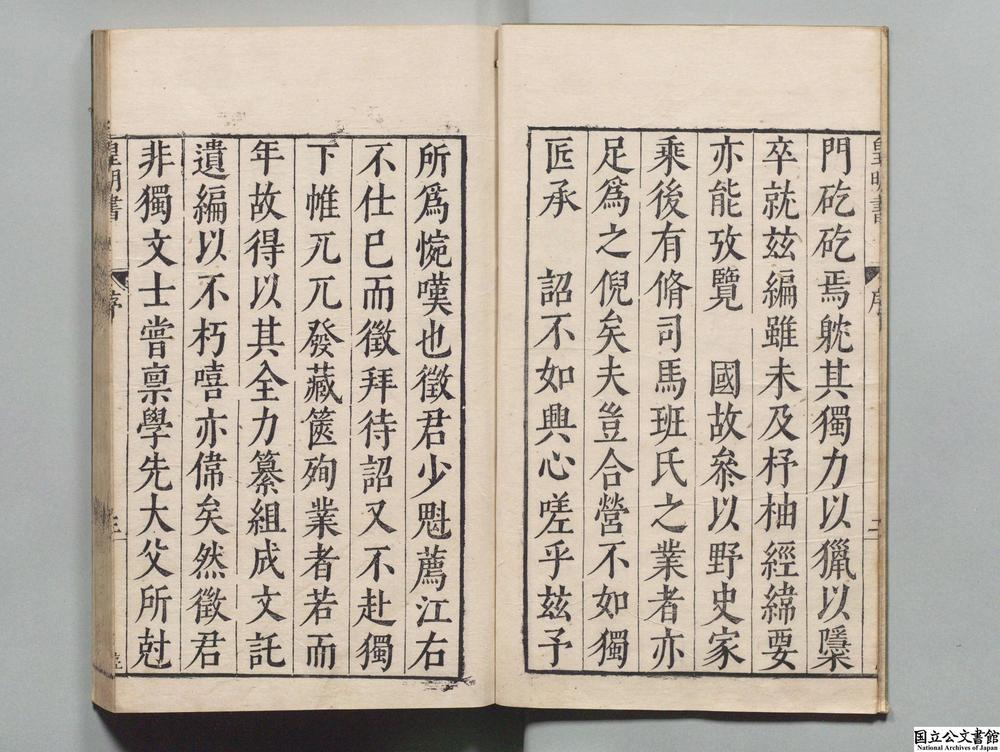 門矻矻焉躭其獨力以獵以隱
卒就兹編雖未及杼柚經緯要
亦能攷覽　國故叅以野史家
乘後有脩司馬班氏之業者亦
足爲之倪矣夫豈合營不如獨
匠承　詔不如興心嗟乎兹予
所爲惋嘆也徵君少魁薦江右
不仕已而徵拜待詔又不赴獨
下帷兀兀發藏篋殉業者若而
年故得以其全力纂組成文託
遺編以不朽嘻亦偉矣然徵君
非獨文士嘗禀學先大父所尅
皇明書
序
三
国立公文書館
National Archives of Japan